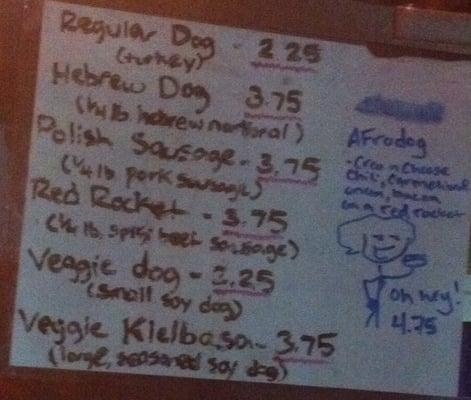 Regular Dog - 2.25
(turkey)
Hebrew Dog 3.75
(1/4 lb hebrew national)
Polish Sausage - 3.75
(1/4 lb pork sausage)
Red Rocket - 3.75
(1/4 lb, spicy beef sausage)
Veggie dog - 2.25
(small soy dog)
Veggie Kielbasa - 3.75
(large, seasoned soy dog)
Afrodog
- Cream Cheese
Chili, Caramelized
onion, bacon
on a red rocket
oh hey!
4.75